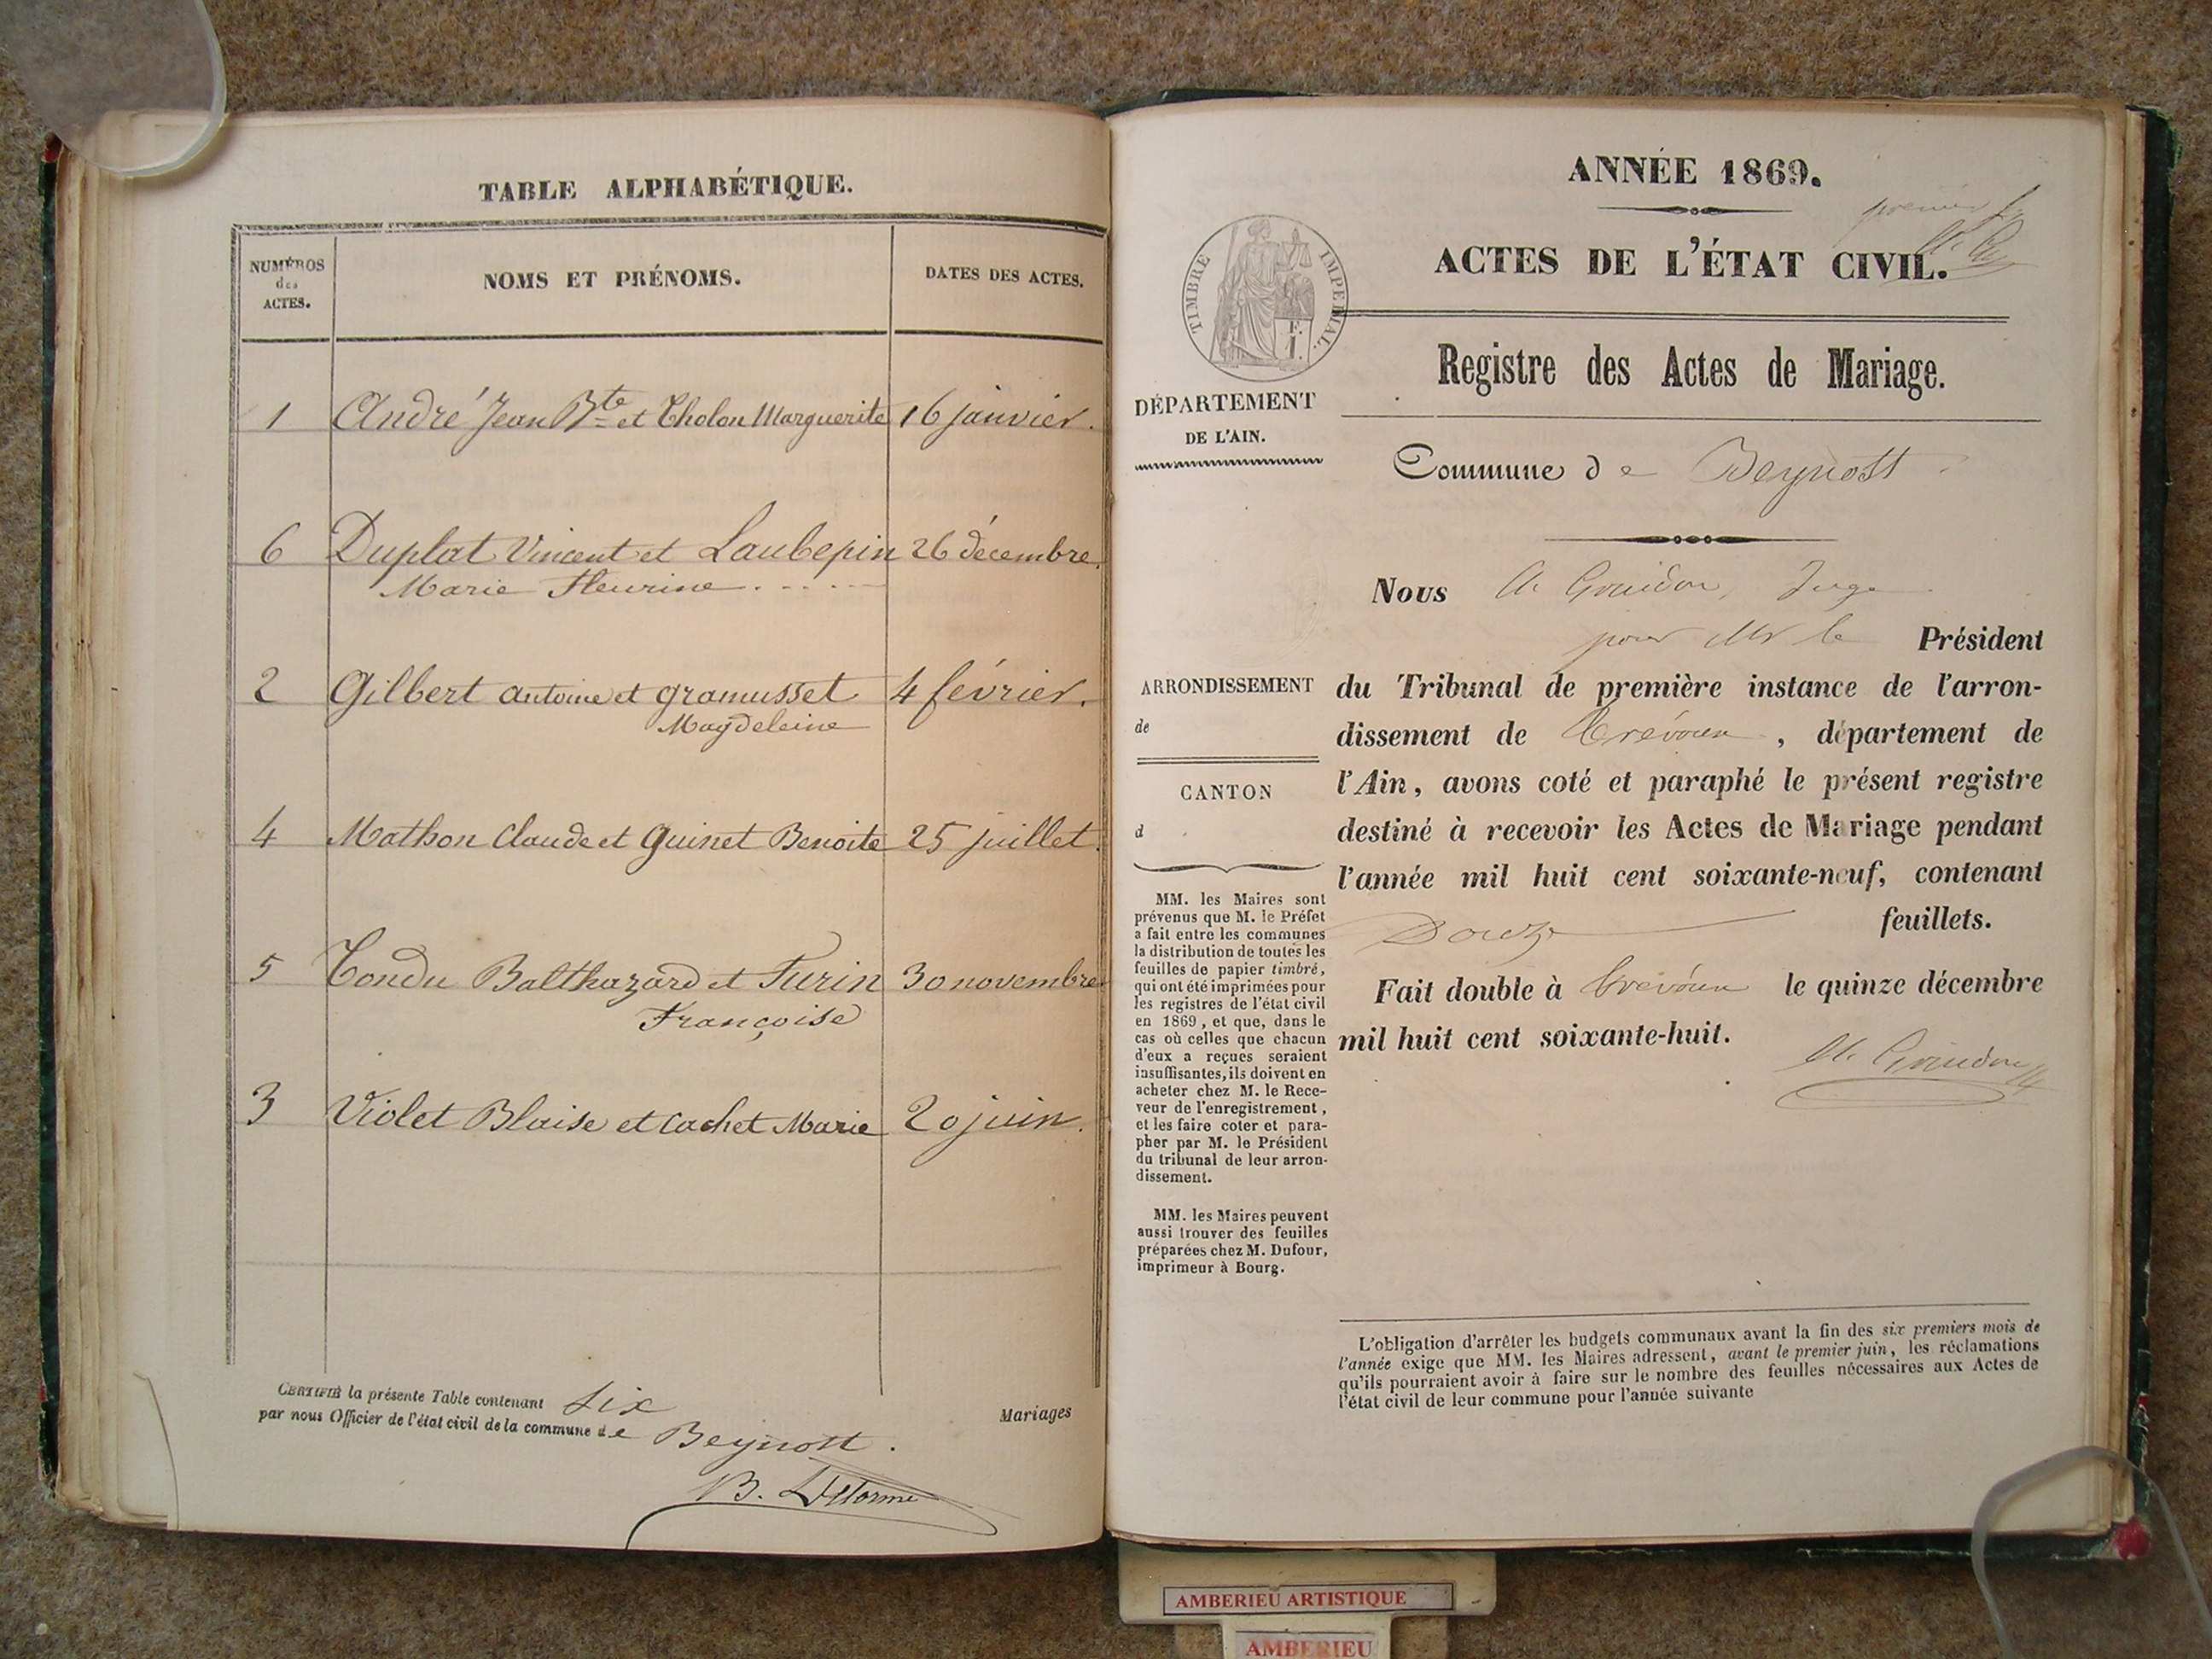 TABLE ALPHABÉTIQUE.
NUMÉROS
des
ACTES.
NOMS ET PRÉNOMS.
DATES DES ACTES.
1 André Jean Bte et Tholon Marguerite 16 janvier.
6 Duplat Vincent et Laubepin 26 décembre.
Marie Fleurine . . . .
2 Gilbert antoine et gramusset 4 février.
Magdeleine
4 Mathon Claude et guinet Benoite 25 juillet.
5 Tondu Balthazard et Furin 30 novembre
Françoise
3 Violet Blaise et cachet Marie 20 juin.
CERTIFIÉ la présente Table contenant six Mariages
par nous Officier de l'état civil de la commune de Beynost.
B. Delorme
ANNÉE 1869.
premier
ACTES DE L'ÉTAT CIVIL.
TIMBRE IMPÉRIAL.
Registre des Actes de Mariage.
DÉPARTEMENT
DE L'AIN.
Commune de Beynost
Nous Juge
pour Mr le Président
ARRONDISSEMENT
de
CANTON
d
du Tribunal de première instance de l'arron-
dissement de Trévoux, département de
l'Ain, avons coté et paraphé le présent registre
destiné à recevoir les Actes de Mariage pendant
l'année mil huit cent soixante-neuf, contenant
Douze feuillets.
Fait double à Trévoux le quinze décembre
mil huit cent soixante-huit.
MM. les Maires sont
prévenus que M. le Préfet
a fait entre les communes
la distribution de toutes les
feuilles de papier timbré,
qui ont été imprimées pour
les registres de l'état civil
en 1869, et que, dans le
cas où celles que chacun
d'eux a reçues seraient
insuffisantes, ils doivent en
acheter chez M. le Rece-
veur de l'enregistrement,
et les faire coter et para-
pher par M. le Président
du tribunal de leur arron-
dissement.
MM. les Maires peuvent
aussi trouver des feuilles
préparées chez M. Dufour,
imprimeur à Bourg.
L'obligation d'arrêter les budgets communaux avant la fin des six premiers mois de
l'année exige que MM. les Maires adressent, avant le premier juin, les réclamations
qu'ils pourraient avoir à faire sur le nombre des feuilles nécessaires aux Actes de
l'état civil de leur commune pour l'année suivante
AMBERIEU ARTISTIQUE
AMBERIEU